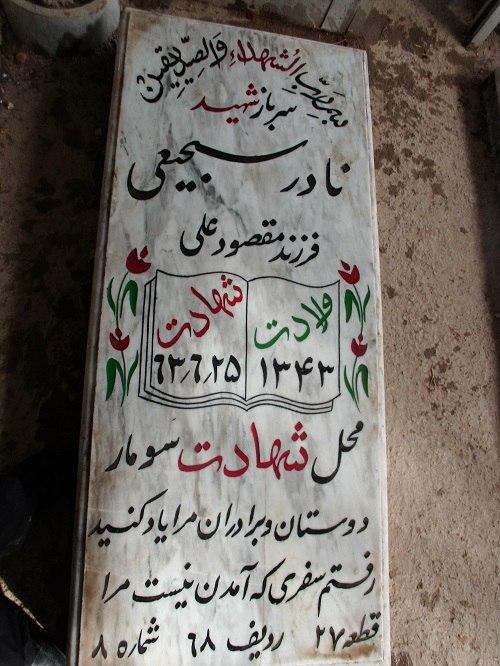 بسم رب الشهداء والصدیقین
سرباز شهید
نادر سجیعی
فرزند مقصود علی
ولادت
۱۳۴۳
شهادت
۶۳٫۶٫۲۵
محل شهادت سومار
دوستان و برادران مرا یاد کنید
رفتم سفری که آمدن نیست مرا
قطعه ۲۷ ردیف ۶۸ شماره ۸